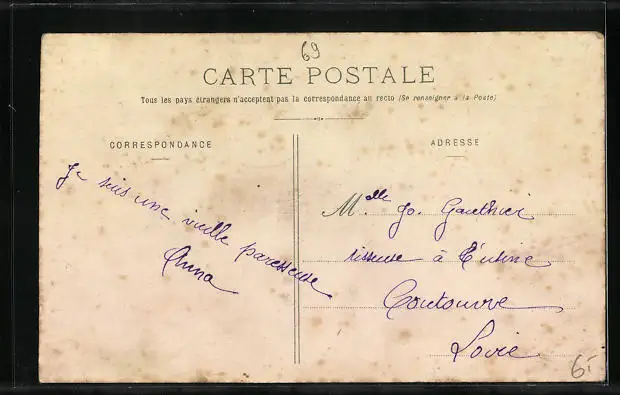 69
CARTE POSTALE
Tous les pays étrangers n'acceptent pas la correspondance au recto (Se renseigner à la Poste)
CORRESPONDANCE
Je suis une vieille paresseuse
Anna
ADRESSE
Mlle Jo. Gauthier
tisseuse à l'usine
Coutouvre
Loire
6-